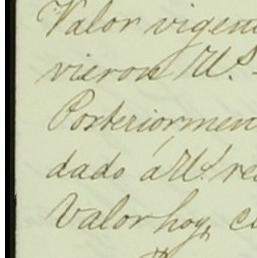 Valor vigen
vieron U.s
Posteriormen
dado á U.s re
Valor hoy, c